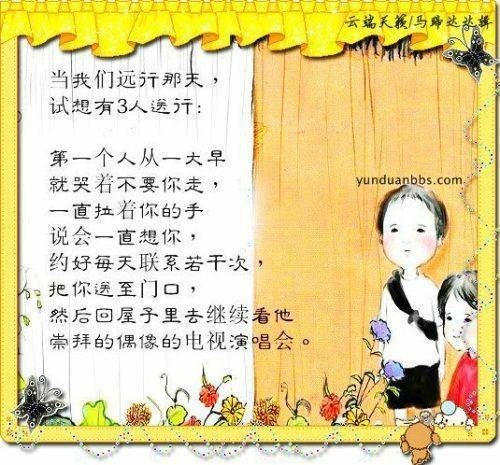 云端天籁/马蹄达达辑
当我们远行那天，
试想有3人送行：
第一个人从一大早
就哭着不要你走，
一直拉着你的手
说会一直想你，
约好每天联系若干次，
把你送至门口，
然后回屋子里去继续看他
崇拜的偶像的电视演唱会。
yunduanbbs.com